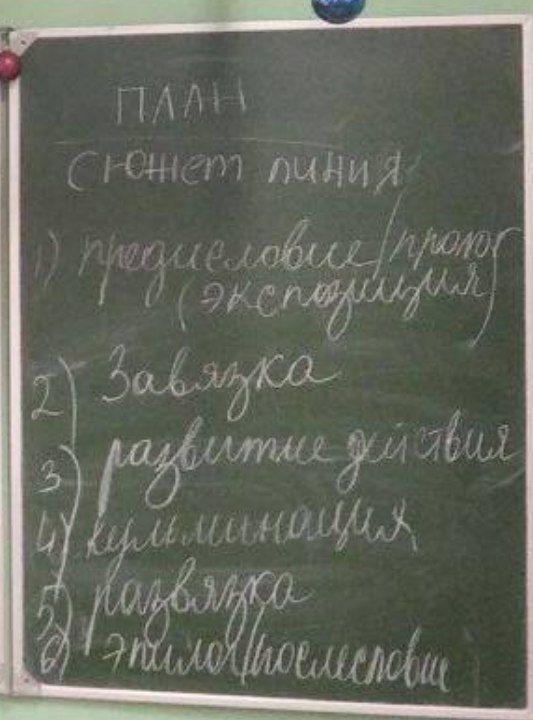 ПЛАН
сюжет линия
1) предисловие/пролог
(экспозиция)
2) Завязка
3) развитие действия
4) кульминация
5) развязка
6) эпилог/послесловие